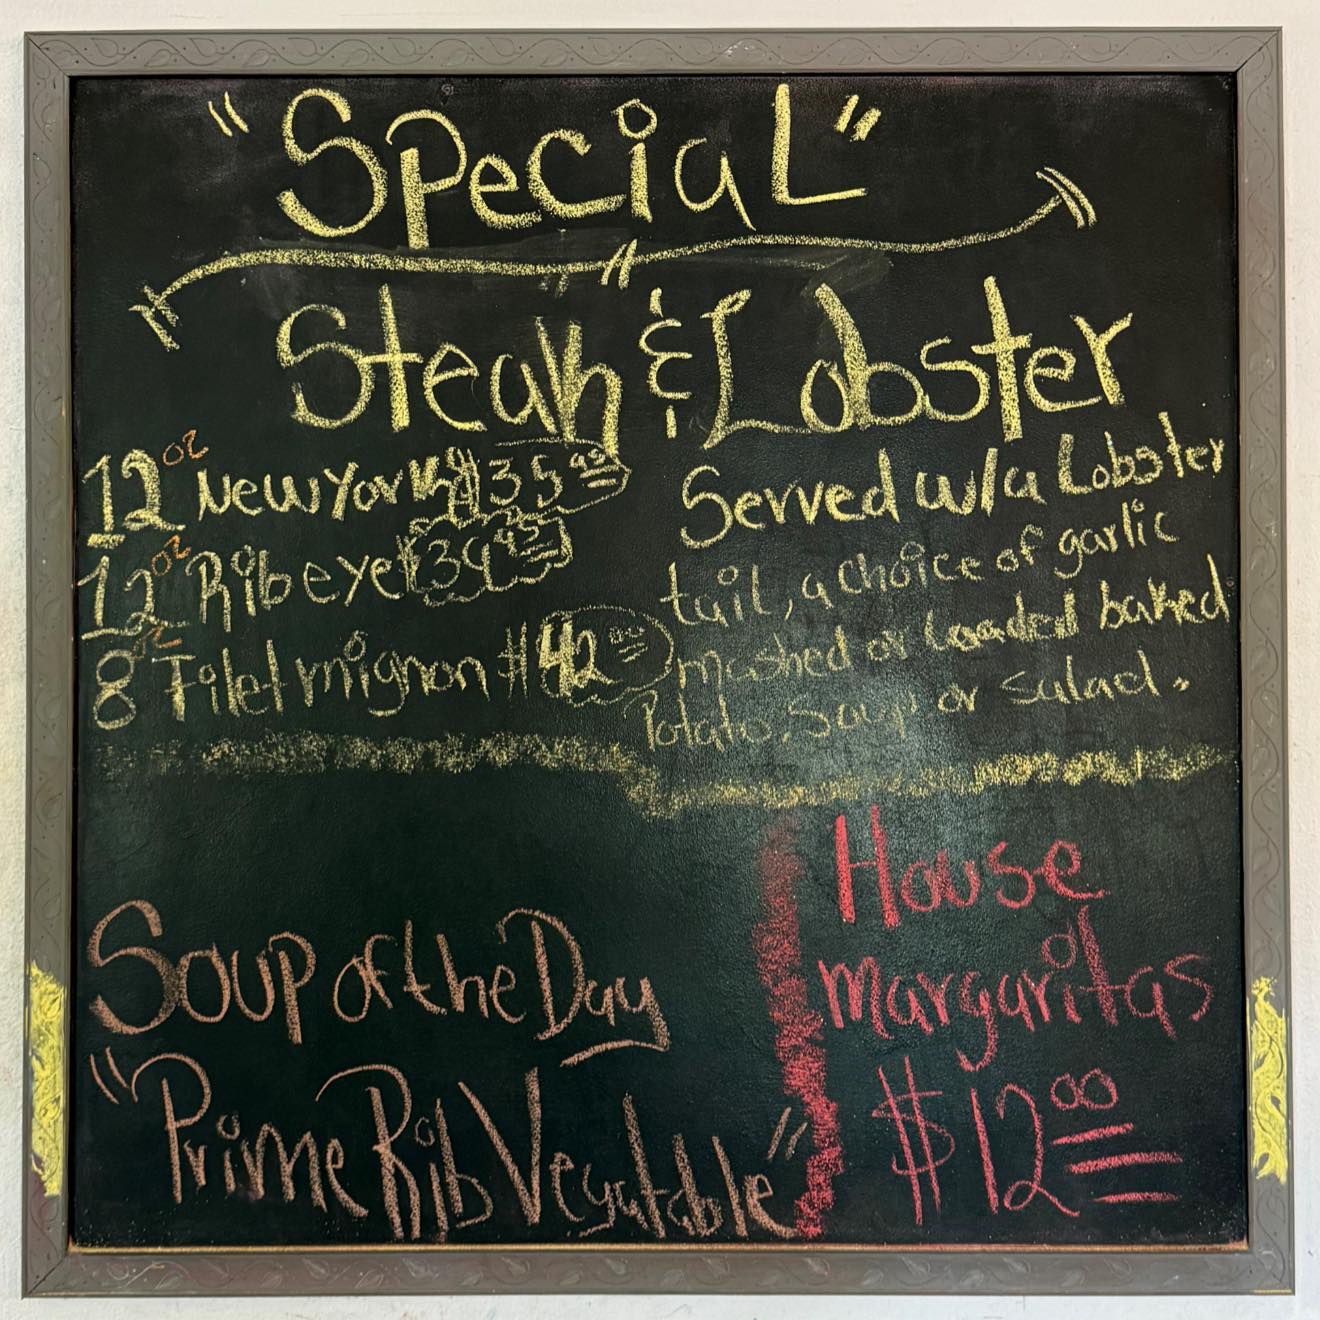 "Special"
Steak & Lobster
12 oz New York $35.00
12 oz Ribeye $39.95
8 oz Filet mignon $42.00
Served w/a Lobster
tail, a choice of garlic
mashed or loaded baked
Potato, Soup or salad.
Soup of the Day
"Prime Rib Vegatable"
House
margaritas
$12.00